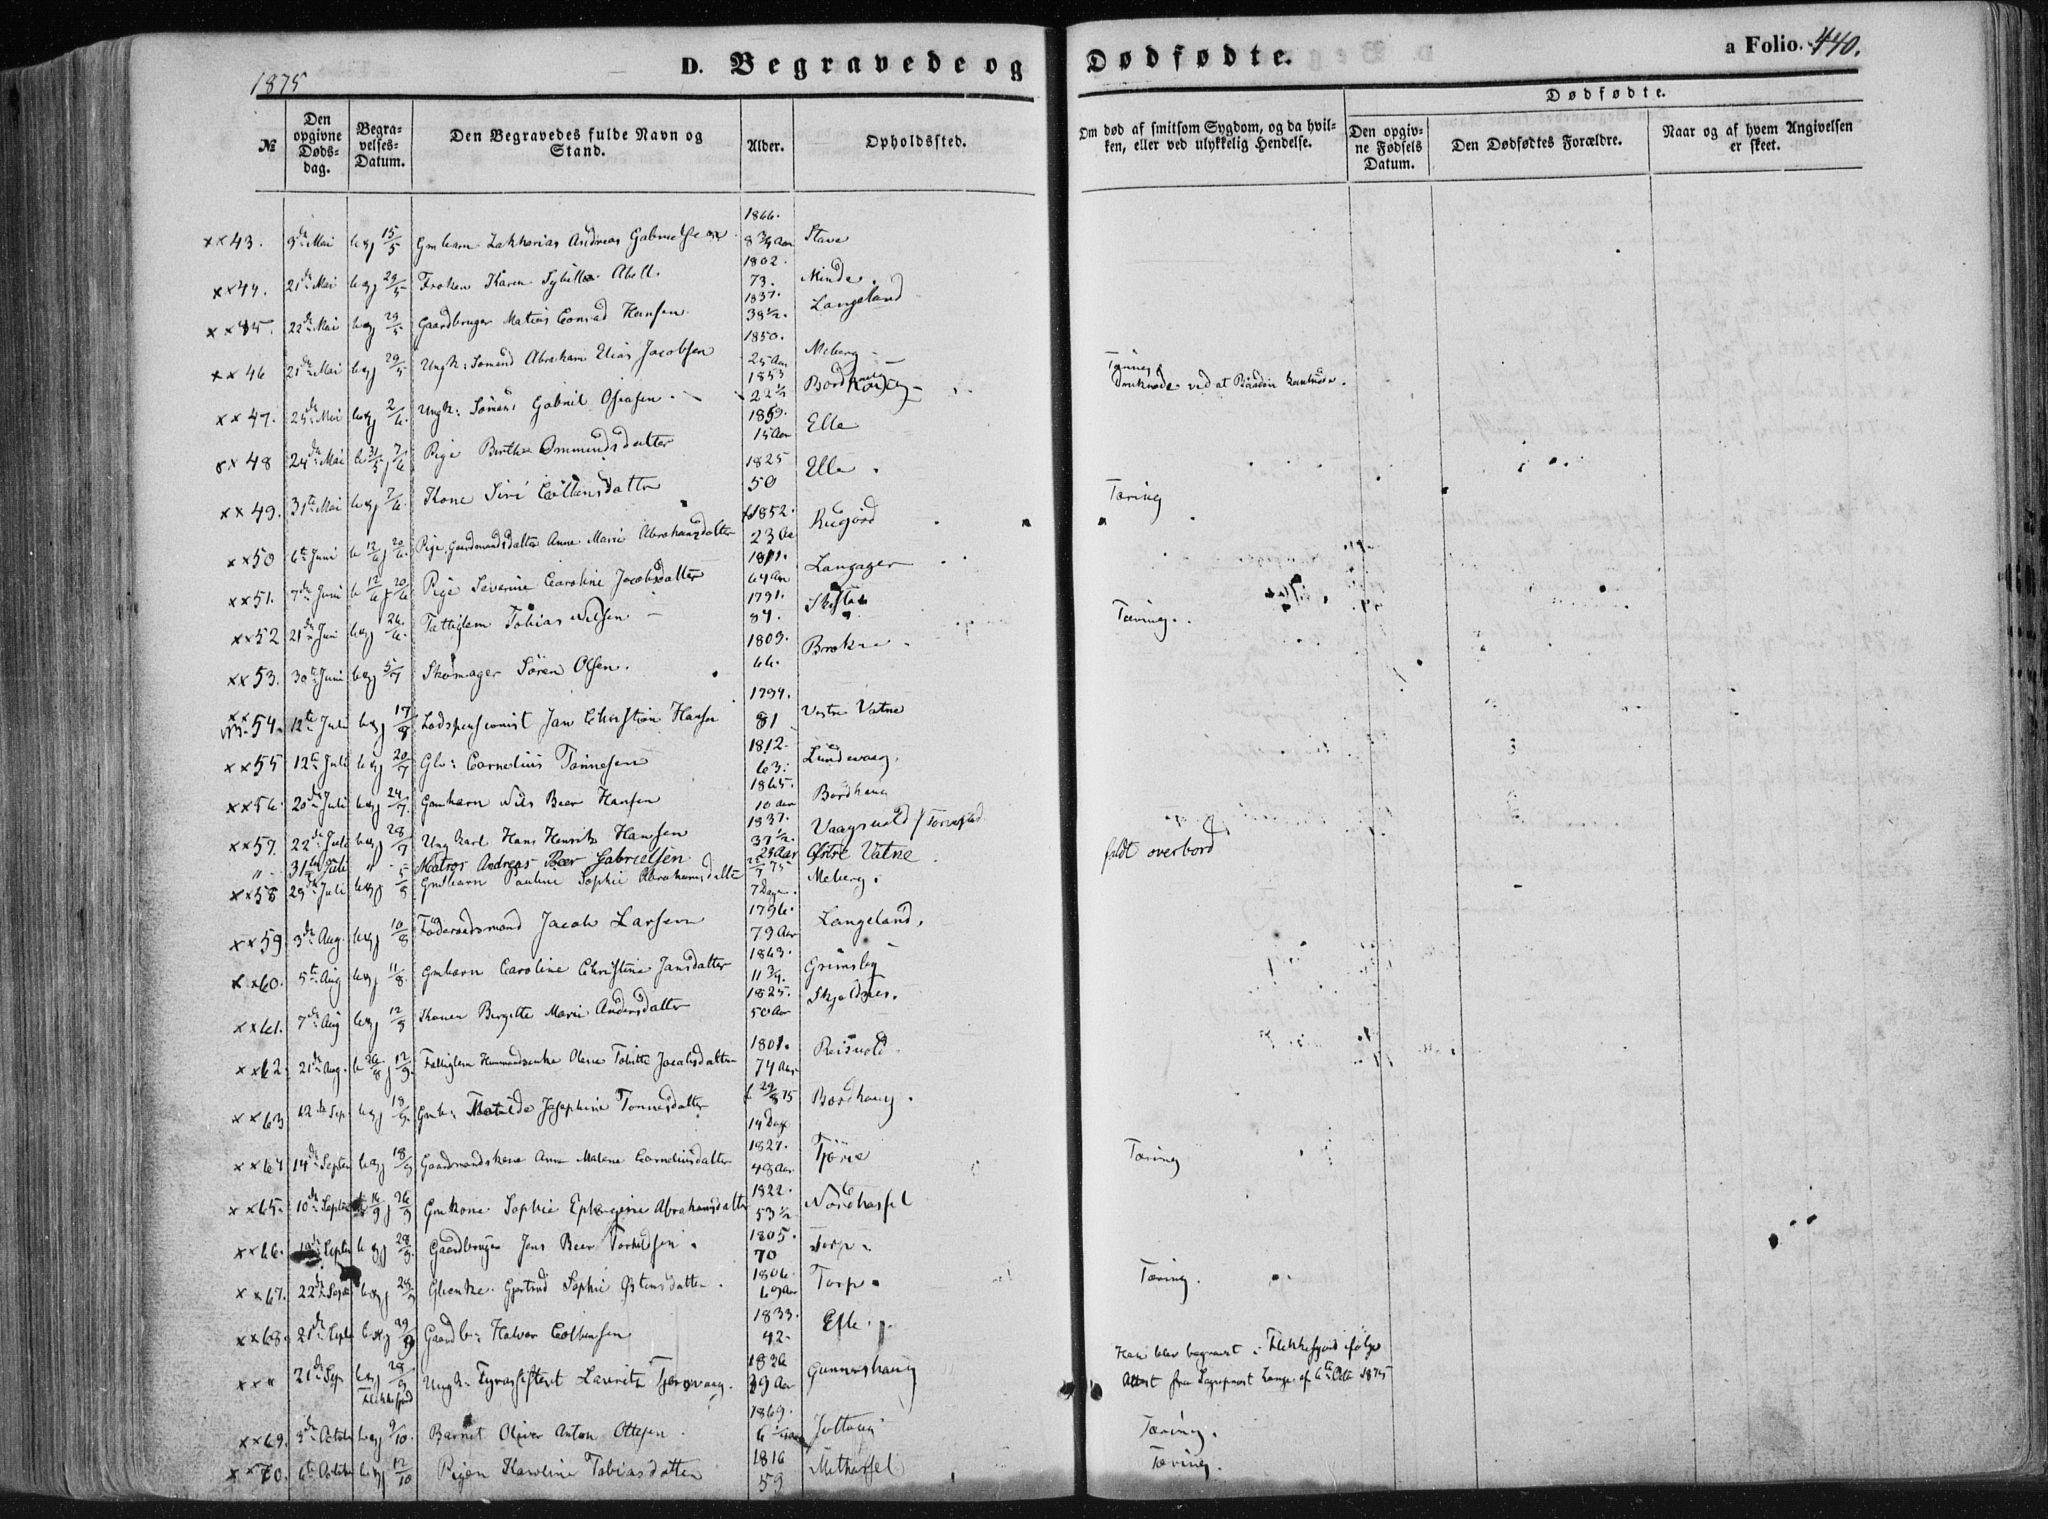 1875
D. Begravede og Dødfødte.
a Folio. 440.
№
Den opgivne Døds-dag.
Begra-velses-Datum.
Den Begravedes fulde Navn og Stand.
Alder.
Opholdssted.
Om død af smitsom Sygdom, og da hvil-ken, eller ved ulykkelig Hendelse.
Dødfødte.
Den opgiv-ne Fødsels Datum.
Den Dødfødtes Forældre.
Naar og af hvem Angivelsen er skeet.
43. 9de Mai b og j 15/5 Gmbarn Zakharias Andreas Gabrielsen 1866. 8 3/4 Aar Stave
44. 21de Mai b og j 29/5 Frøken Karen Sybille Abell. 1802. 73. Minde.
45. 22de Mai b og j 29/5 Gaardbruger Matius Conrad Hansen 1837. 38 1/2. Langeland
46 21de Mai b og j 29/5 Ungk: Sømand Abraham Elias Jacobsen 1850. 25 Aar Meberg
47. 25de Mai b og j 2/6. Ungk: Sømand Gabriel Osiasen. 1853 22 1/2 Bordhaug druknede ved at Baaden kantrede.
48 24de Mai b 31/5 j 7/6 Pige Berthe Ommundsdatter 1859. 15 Aar Elle
49. 31te Mai b og j 7/6. Kone Siri Colbensdatter 1825 50 Elle. Tæring
50 6te Juni b 12/6 j 20/6. Pige Gaardmandsdatter Anne Marie Abrahamsdatter 1852. 23 Aar
51. 7de Juni b 12/6 j 20/6 Pige Severine Caroline Jacobsdatter 1811. 64 Aar Langager
52 21de Juni b og j 26/6. Fattiglem Tobias Nilsen 1791. 84. Tæring.
53. 30te Juni b og j 5/7 Skomager Søren Olsen. 1809. 66. Brokne
54. 12te Juli b og j 17/8 Lodspensionist Jan Christian Hansen 1794. 81 Vestre Vatne
55 12te Juli b og j 20/7 Glv: Cornelius Tønnesen 1812. 63. Lundevaag.
56. 20de Juli b og j 24/7. Gmbarn Nils Beer Hansen 1865. 10 Aar Bordhaug
57. 22de Juli b og j 28/7 Ungkarl Hans Henrik Hansen 1837. 37 1/2.
" 31te Juli " - Matros Andreas Beer Gabrielsen 24 Aar Østre Vatne. faldt overbord
58 29de Juli b og j 5/8 Gmbarn Pauline Sophie Abrahamsdatter 22/7 75 7 Dage. Meberg.
59. 3de Aug. b og j 10/8 Føderaadsmand Jacob Larsen 1796. 79 Aar Langeland.
60. 5te Aug b og j 11/8 Gmbarn Caroline Christine Jansdatter 1863. 11 3/4. Grimsby
61. 7de Aug b og j 12/9 Konen Birgitte Marie Andersdatter 1825. 50 Aar Skjoldnes.
62. 21de Aug. b 26/8 j 12/9. Fattiglem Husmandsenke Olene Tobitte Jacobsdatter 1801. 74 Aar Reisvold
63 12te Sept b og j 18/9. Gmb: Matilde Josephine Tonnesdatter f 29/8 75 14 Dage Bordhaug.
64 14de Septem b og j 18/9 Gaardmandskone Anne Malene Corneliusdatter 1827. 48 Aar Tjørve Tæring
65. 10de Septbr b 16/9 j 26/9 Gmkone Sophie Ephegine Abrahamsdatter 1822. 53 1/2 Nordhassel
66. Septbr b og j 28/9. Gaardbruger Jens Beer Torkelsen. 1805. 70 Torp.
67. 22de Septbr b og j 28/9 Glenke Gjertrud Sophie Østensdatter. 1806. 69 Aar Torp. Tæring.
68. 21de Septbr b og j 29/9 Gaardb: Halvor Colbensen 1833. 42. Elle.
" 21de Sept b og j 28/9 Flekkefjord Ungk: Lauritz Tjørsvaag. 1836 39 Aar Gunnershaug Han blev begravet i Flekkefjord ifølge
Attest fra Sogneprest Lange af 6te Octb 1875
69. 3de Octobr b og j 9/10. Barnet Oliver Anton Ottesen. 1869. 6 1/4 Aar Tæring.
70. 6te Octobr b og j 12/10 Pigen Karoline Tobiasdatter 1816 59 Mithassel Tæring.